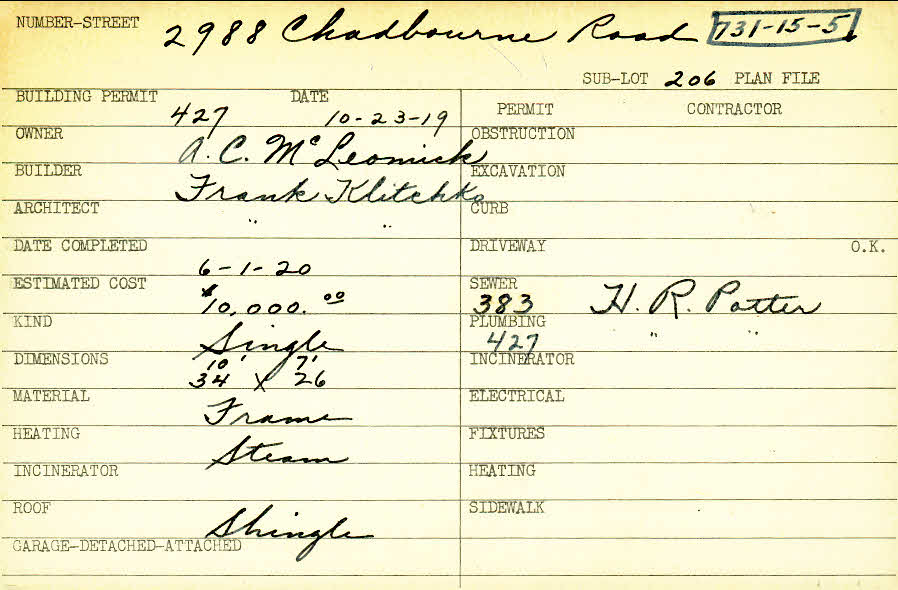 NUMBER-STREET 2988 Chadbourne Road 731-15-5
SUB-LOT 206 PLAN FILE
BUILDING PERMIT 427 DATE 10-23-19
PERMIT CONTRACTOR
OWNER A. C. Mc
OBSTRUCTION
BUILDER Frank Klitchko
EXCAVATION
ARCHITECT " "
CURB
DATE COMPLETED 6-1-20
DRIVEWAY O.K.
ESTIMATED COST $10,000.00
SEWER 383 H. R. Potter
KIND Single
PLUMBING 427 " "
DIMENSIONS 10' 7'
34 X 26
INCINERATOR
MATERIAL Frame
ELECTRICAL
HEATING Steam
FIXTURES
INCINERATOR
HEATING
ROOF Shingle
SIDEWALK
GARAGE-DETACHED-ATTACHED